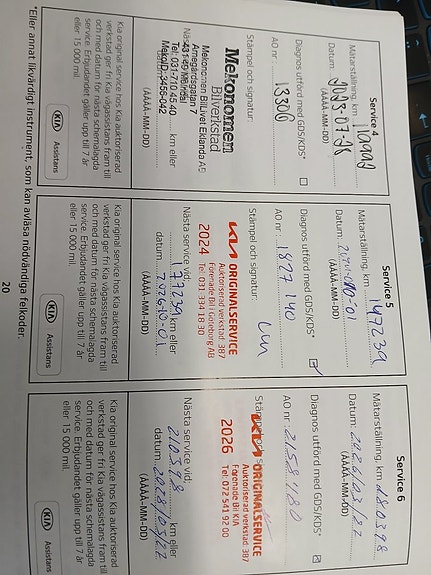 Service 4
Mätarställning, km
Datum: 2023-07-28
(ÅÅÅÅ-MM-DD)
Diagnos utförd med GDS/KDS*
AO nr 13306
Stämpel och signatur:
Mekonomen
Bilverkstad
Mekonomen BilLivet Eklanda AB
Arnegårdsgatan 7
431 49 Mölndal
Tel: 031-710 45 40
MekoID: 3456-042
km eller
(ÅÅÅÅ-MM-DD)
Kia original service hos Kia auktoriserad
verkstad ger fri Kia vägassistans fram till
och med datum för nästa schemalagda
service. Erbjudandet gäller upp till 7 år
eller 15 000 mil.
KIA Assistans
Service 5
Mätarställning, km 147239
Datum:
(ÅÅÅÅ-MM-DD)
Diagnos utförd med GDS/KDS*
AO nr 1827140
Stämpel och signatur:
KIA ORIGINALSERVICE
Auktoriserad verkstad: 387
Förenade Bil i Göteborg AB
2024 Tel: 031 334 18 30
Nästa service vid,
177239 km eller
datum 2026-10-01
(ÅÅÅÅ-MM-DD)
Kia original service hos Kia auktoriserad
verkstad ger fri Kia vägassistans fram till
och med datum för nästa schemalagda
service. Erbjudandet gäller upp till 7 år
eller 15 000 mil.
KIA Assistans
Service 6
Mätarställning, km 180398
Datum: 2026/03/27
(ÅÅÅÅ-MM-DD)
Diagnos utförd med GDS/KDS*
AO nr 2158980
KIA ORIGINALSERVICE
Auktoriserad verkstad: 387
Förenade Bil KIA
2026 Tel: 072 541 92 00
Nästa service vid,
210398 km eller
datum 2028/03/27
(ÅÅÅÅ-MM-DD)
Kia original service hos Kia auktoriserad
verkstad ger fri Kia vägassistans fram till
och med datum för nästa schemalagda
service. Erbjudandet gäller upp till 7 år
eller 15 000 mil.
KIA Assistans
*Eller annat likvärdigt instrument, som kan avläsa nödvändiga felkoder.
20